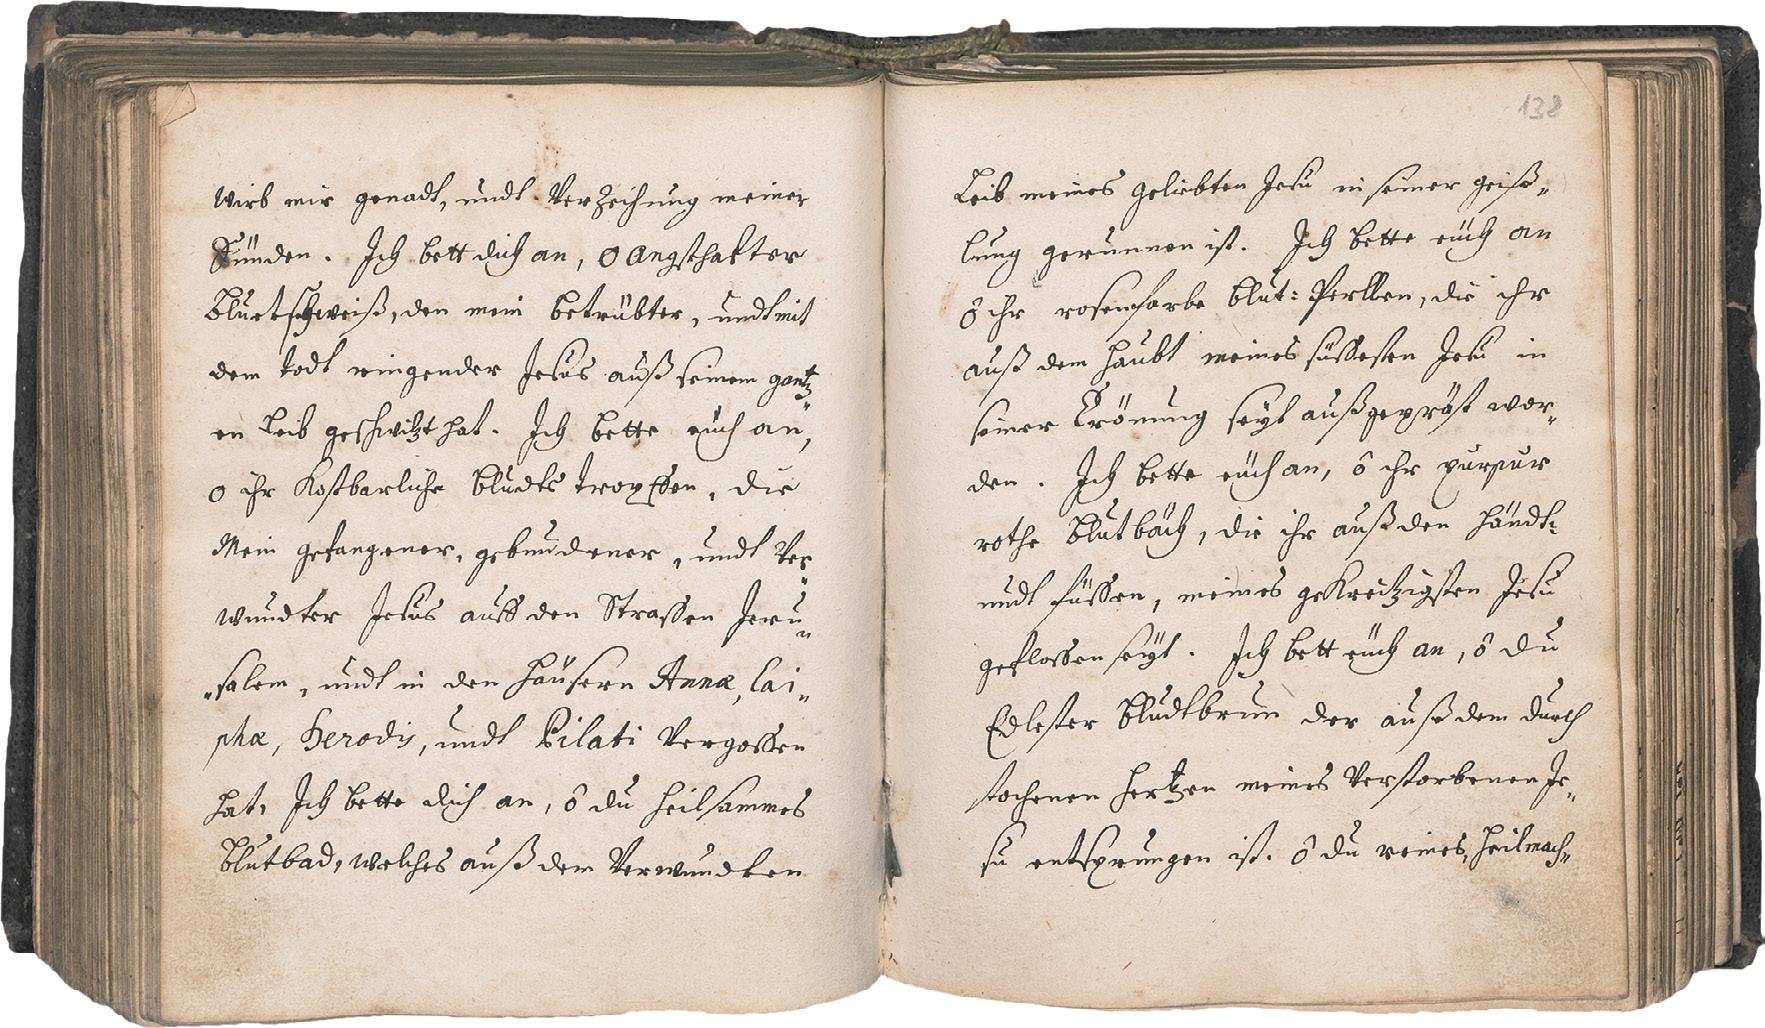 wirb mir genadt, undt Verzeihung meiner
Sünden. Ich bett dich an, O Angsthafter
Bluetschweiß, den mein betrübter, undt mit
dem todt ringender Jesus auß seinem gantz„
en Leib geschwitzt hat. Ich bette euch an,
o ihr Kostbarliche bludts tropffen, die
Mein gefangener, gebundener, undt Ver„
wundter Jesus auff den Strassen Jeru„
„salem, undt in den Häusern Annæ, Cai„
phæ, Herodis, undt Pilati Vergossen
hat, Ich bette dich an, ô du heilsammes
blutbad, welches auß dem Verwundten
138
Leib meines geliebten Jesu in seiner geiß„
lung gerunnen ist. Ich bette eüch an
ô ihr rosenfarbe blut: Perllen, die ihr
auß dem haubt meines süssesten Jesu in
seiner Crönung seyt außgeprest wor„
den. Ich bette eüch an, ô ihr purpur
rothe blutbäch, die ihr auß den händt:
undt füssen, meines geKreitzigsten Jesu
geflossen seyt. Ich bett eüch an, ô du
Edlester bludtbrun der auß dem durch
stochenen hertzen meines Verstorbenen Je„
su entsprungen ist. ô du reines, heilmach„